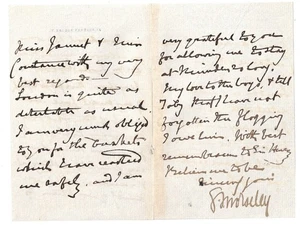 Miss Jannet & Miss
Constance with my very
best regards —
London is quite as
detestable as usual
I am very much obliged
to you for the basket
which reached
me safely, and I am
very grateful to you
for allowing me to stay
at so long.
My love to the boys, & tell
Toby that I have not
forgotten the flogging
I owe him. With best
remembrances to Sir Henry
Believe me to be
sincerely yours